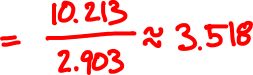 = \frac{10.213}{2.903} ≈ 3.518